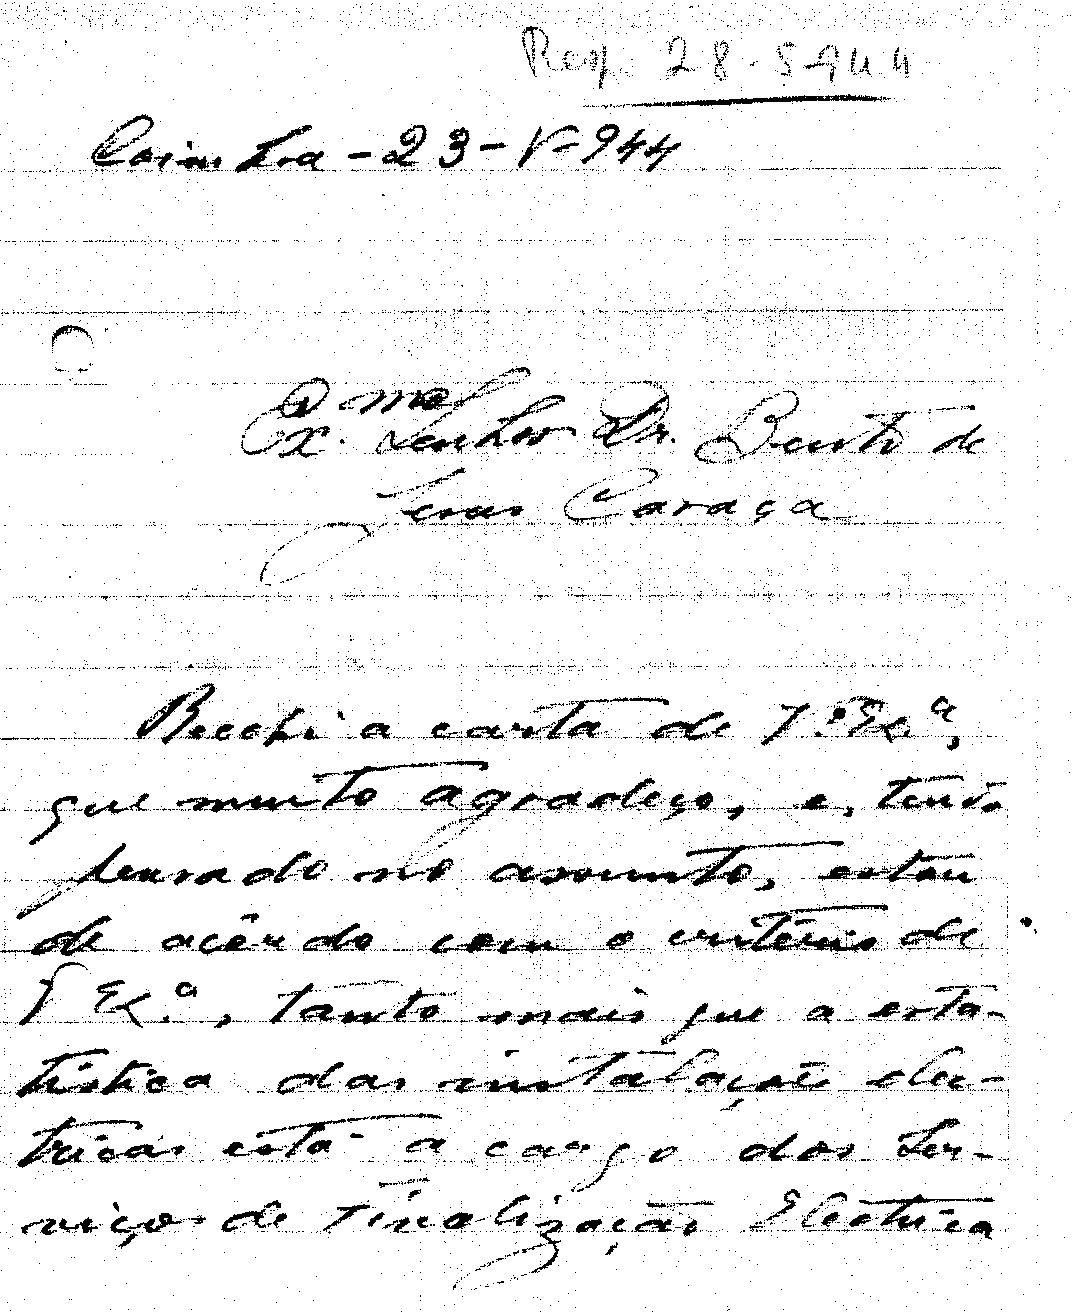 Resp. 28-5-944
Coimbra - 23 - V - 944
Ex.mo Senhor Dr. Bento de
Jesus Caraça
Recebi a carta de V. Exª,
que muito agradeço, e, tendo
pensado no assunto, estou
de acôrdo com o critério de
V Ex.ª, tanto mais que a esta-
tistica das instalações eléc-
tricas está a cargo dos Ser-
viços de Fiscalização Electrica